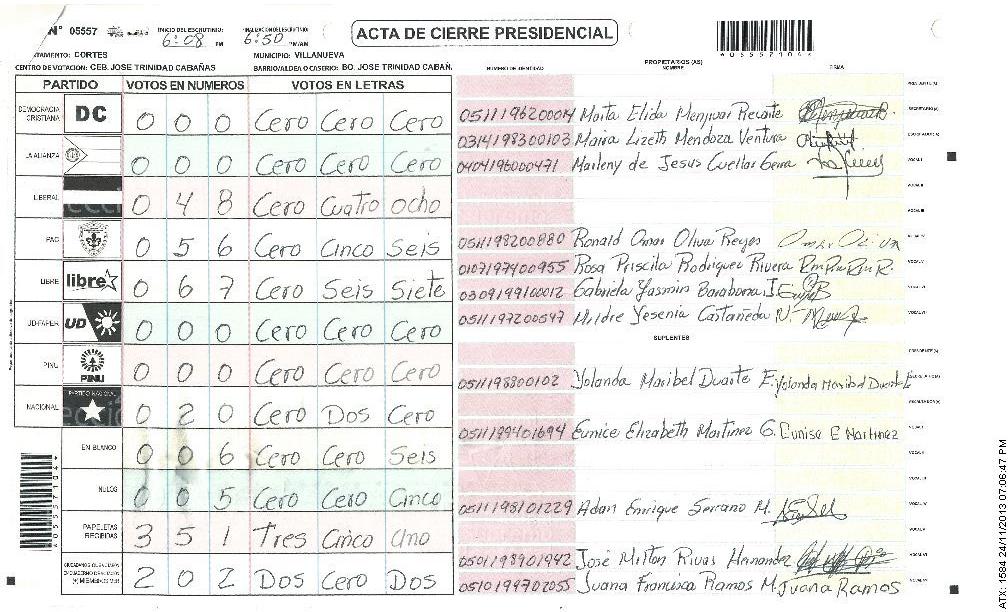 N° 05557 INICIO DEL ESCRUTINIO: 6:08 PM FINALIZACION ESCRUTINIO: 6:50 PM/AM
ACTA DE CIERRE PRESIDENCIAL
4055571044
CORTES MUNICIPIO: VILLANUEVA
CENTRO DE VOTACION: CEB. JOSE TRINIDAD CABAÑAS BARRIO/ALDEA O CASERIO: BO. JOSE TRINIDAD CABAÑ.
NUMERO DE IDENTIDAD PROPIETARIOS (AS) NOMBRE FIRMA
PARTIDO VOTOS EN NUMEROS VOTOS EN LETRAS
DEMOCRACIA CRISTIANA DC 0 0 0 Cero Cero Cero
LA ALIANZA 0 0 0 Cero Cero Cero
LIBERAL 0 4 8 Cero Cuatro ocho
PAC 0 5 6 Cero Cinco Seis
LIBRE libre 0 6 7 Cero Seis Siete
UD-FAPER UD 0 0 0 Cero Cero Cero
PINU PINU 0 0 0 Cero Cero Cero
NACIONAL PARTIDO NACIONAL 0 2 0 Cero Dos Cero
EN BLANCO 0 0 6 Cero Cero Seis
NULOS 0 0 5 Cero Cero Cinco
PAPELETAS RECIBIDAS 3 5 1 Tres Cinco uno
2 0 2 Dos Cero Dos
0511196200014 Marta Elida Menjivar Recarte
0314198300103 Maira Lizeth Mendoza Ventura
0404196000471 Marleny de Jesus Cuellar
0511198200880 Ronald Omar Oliva Reyes Omar Oliva
0107197400955 Rosa Priscila Rodriguez Rivera
0309199100012 Gabriela Yasmin Barahona I.
0511197200547 Yesenia Castañeda N.
SUPLENTES
0511198800102 Yolanda Maribel Duarte E. Yolanda Maribel Duarte E
0511199401694 Eunice Elizabeth Martinez G. Eunise E Martinez
0511198101229 Adan Enrique Serrano M.
0501198901942 José Milton Rivas Hernandez
0510199702055 Juana Francisca Ramos M. Juana Ramos
ATX: 1584 24/11/2013 07:06:47 PM